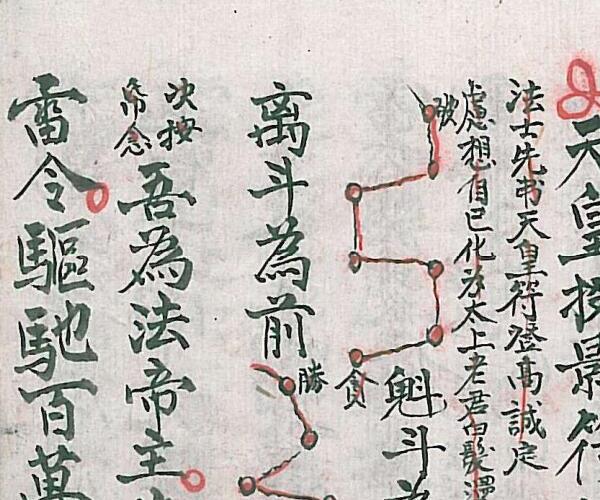 天皇
法士先书天皇符登高誠定
慮想自己化为太上老君白髮
破
魁斗
貪
离斗為前
勝
次按
帝念
吾為法帝主
雷令驅馳百萬